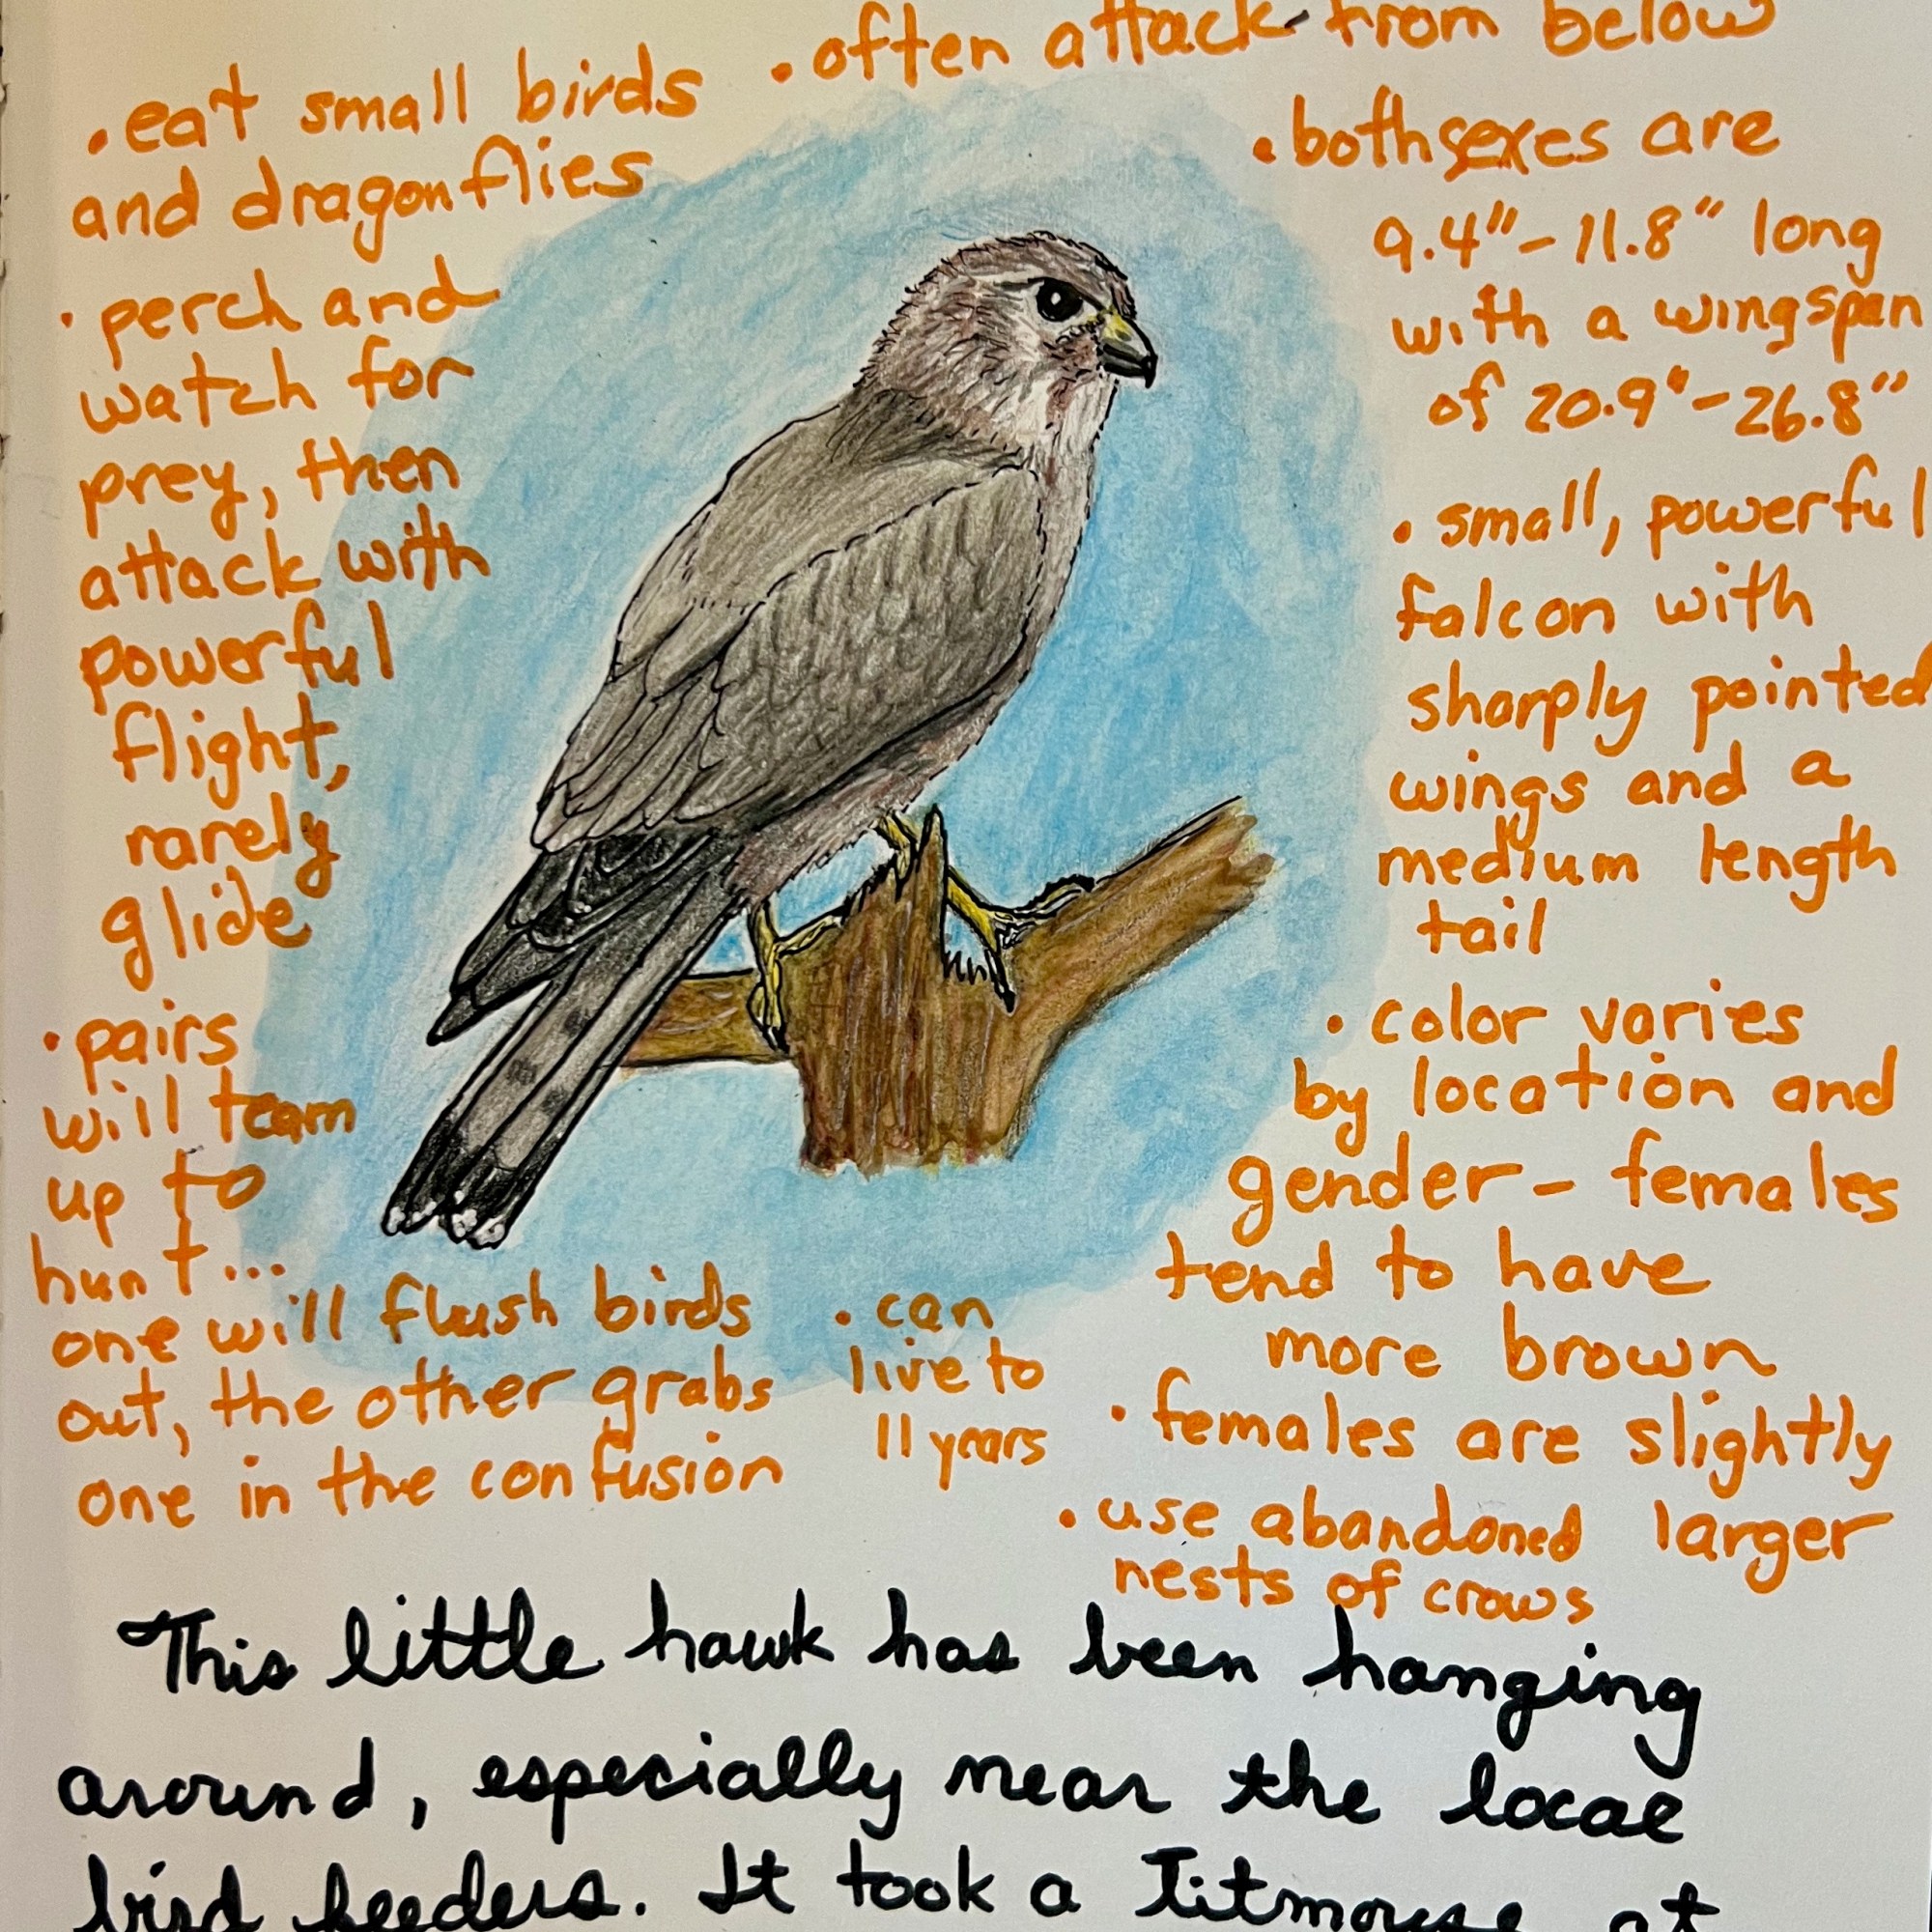 • often attack from below
• eat small birds
and dragonflies
• perch and
watch for
prey, then
attack with
powerful
flight,
rarely
glide
• pairs
will team
up to
hunt...
one will flush birds
out, the other grabs
one in the confusion
• can
live to
11 years
• both sexes are
9.4"-11.8" long
with a wingspan
of 20.9"-26.8"
• small, powerful
falcon with
sharply pointed
wings and a
medium length
tail
• color varies
by location and
gender - females
tend to have
more brown
• females are slightly
larger
• use abandoned
nests of crows
This little hawk has been hanging
around, especially near the local
bird feeders. It took a Titmouse at